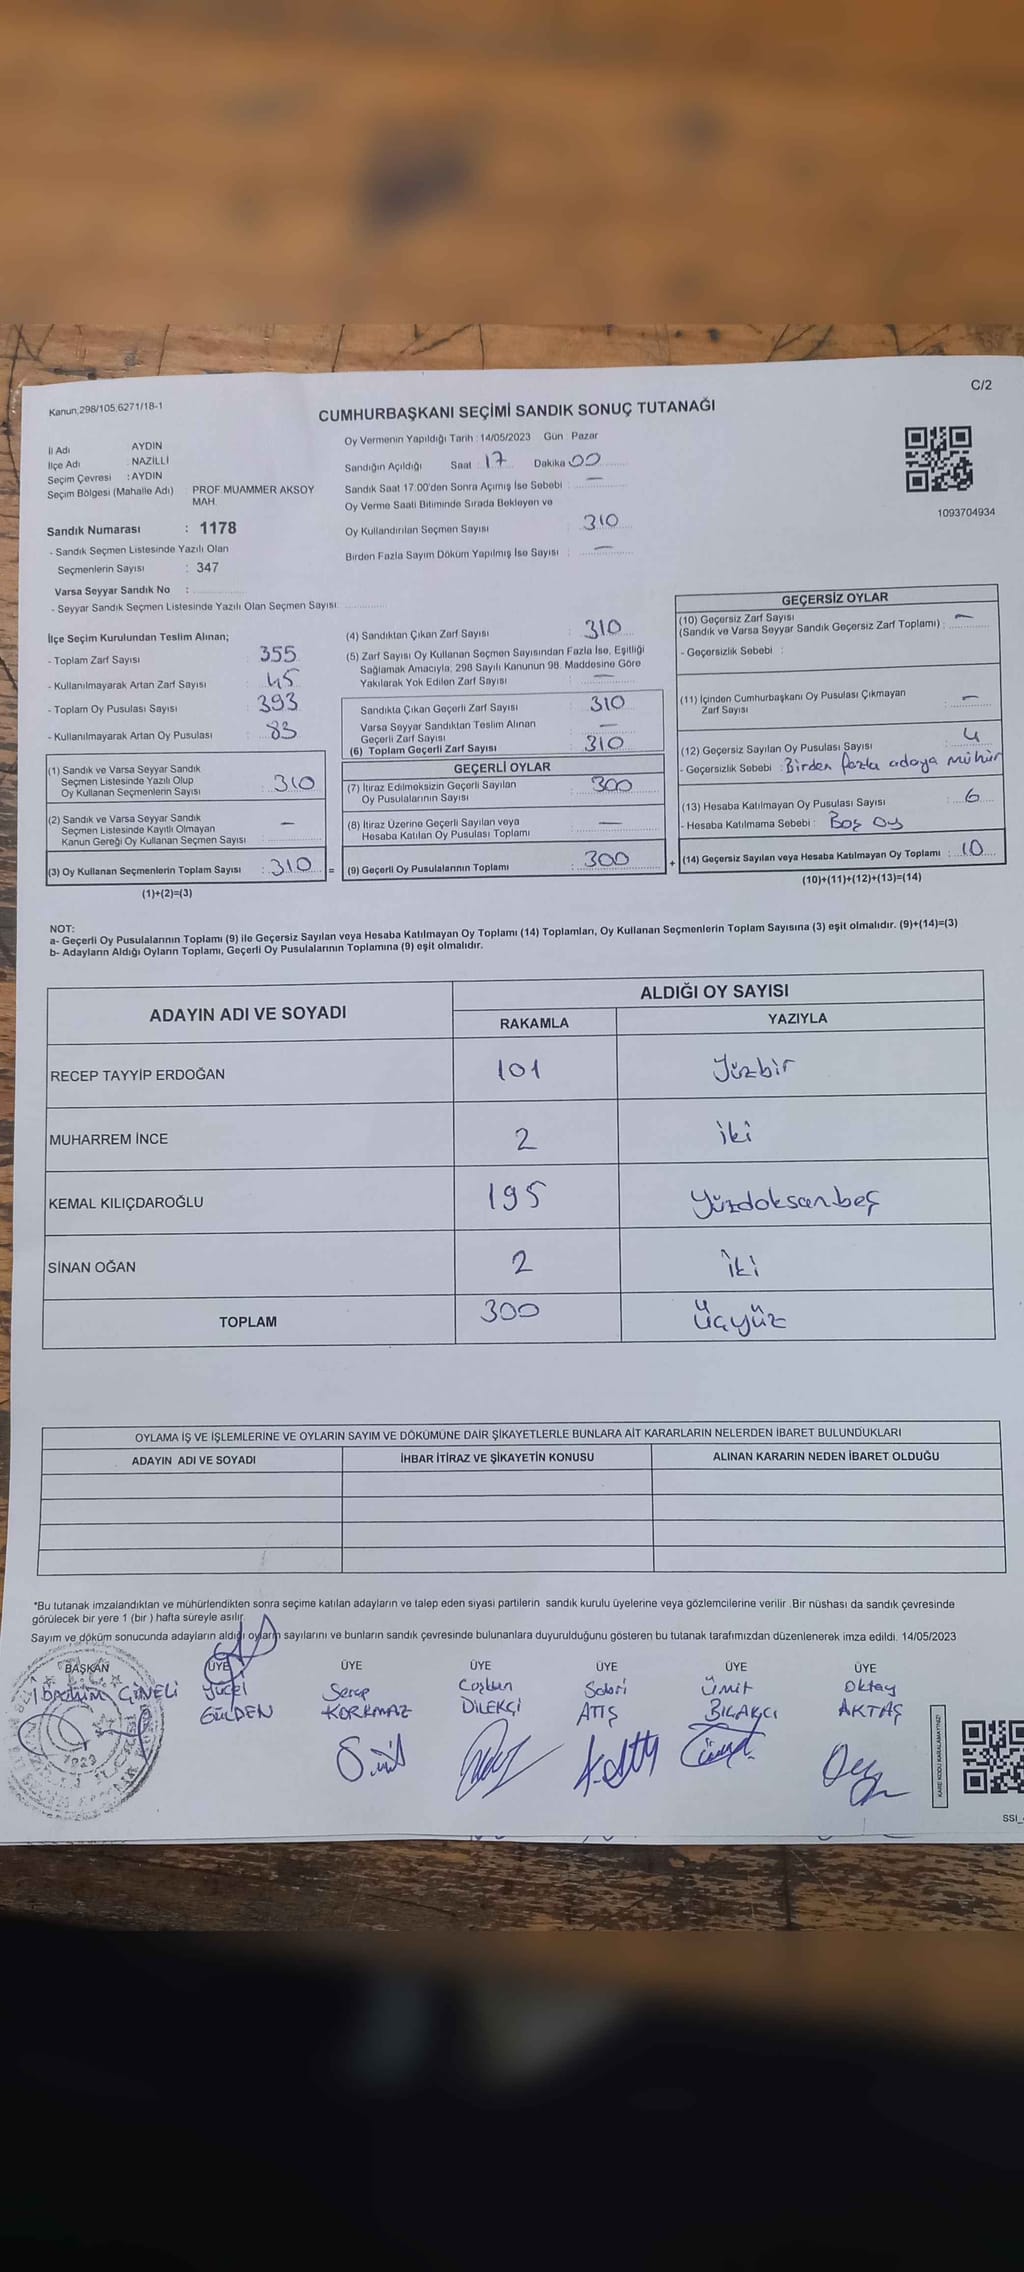 C/2
Kanun,298/105,6271/18-1
CUMHURBAŞKANI SEÇİMİ SANDIK SONUÇ TUTANAĞI
İl Adı AYDIN
İlçe Adı : NAZİLLİ
Seçim Çevresi : AYDIN
Seçim Bölgesi (Mahalle Adı) PROF.MUAMMER AKSOY
MAH.
Sandık Numarası : 1178
- Sandık Seçmen Listesinde Yazılı Olan
Seçmenlerin Sayısı : 347
Varsa Seyyar Sandık No :
- Seyyar Sandık Seçmen Listesinde Yazılı Olan Seçmen Sayısı
Oy Vermenin Yapıldığı Tarih : 14/05/2023 Gün Pazar
Sandığın Açıldığı Saat : 17 Dakika 00
Sandık Saat 17:00'den Sonra Açımış İse Sebebi : —
Oy Verme Saati Bitiminde Sırada Bekleyen ve
Oy Kullandırılan Seçmen Sayısı : 310
Birden Fazla Sayım Döküm Yapılmış İse Sayısı : —
1093704934
İlçe Seçim Kurulundan Teslim Alınan;
- Toplam Zarf Sayısı : 355
- Kullanılmayarak Artan Zarf Sayısı : 45
- Toplam Oy Pusulası Sayısı : 393
- Kullanılmayarak Artan Oy Pusulası : 83
(1) Sandık ve Varsa Seyyar Sandık
Seçmen Listesinde Yazılı Olup
Oy Kullanan Seçmenlerin Sayısı : 310
(2) Sandık ve Varsa Seyyar Sandık
Seçmen Listesinde Kayıtlı Olmayan
Kanun Gereği Oy Kullanan Seçmen Sayısı : —
(3) Oy Kullanan Seçmenlerin Toplam Sayısı : 310 =
(1)+(2)=(3)
(4) Sandıktan Çıkan Zarf Sayısı : 310
(5) Zarf Sayısı Oy Kullanan Seçmen Sayısından Fazla İse, Eşitliği
Sağlamak Amacıyla, 298 Sayılı Kanunun 98. Maddesine Göre
Yakılarak Yok Edilen Zarf Sayısı : —
Sandıkta Çıkan Geçerli Zarf Sayısı : 310
Varsa Seyyar Sandıktan Teslim Alınan
Geçerli Zarf Sayısı : —
(6) Toplam Geçerli Zarf Sayısı : 310
GEÇERLİ OYLAR
(7) İtiraz Edilmeksizin Geçerli Sayılan
Oy Pusulalarının Sayısı : 300
(8) İtiraz Üzerine Geçerli Sayılan veya
Hesaba Katılan Oy Pusulası Toplamı : —
(9) Geçerli Oy Pusulalarının Toplamı : 300 +
GEÇERSİZ OYLAR
(10) Geçersiz Zarf Sayısı
(Sandık ve Varsa Seyyar Sandık Geçersiz Zarf Toplamı) : —
- Geçersizlik Sebebi :
(11) İçinden Cumhurbaşkanı Oy Pusulası Çıkmayan
Zarf Sayısı : —
(12) Geçersiz Sayılan Oy Pusulası Sayısı : 4
- Geçersizlik Sebebi : Birden fazla adaya mühür
(13) Hesaba Katılmayan Oy Pusulası Sayısı : 6
- Hesaba Katılmama Sebebi : Boş oy
(14) Geçersiz Sayılan veya Hesaba Katılmayan Oy Toplamı : 10
(10)+(11)+(12)+(13)=(14)
NOT:
a- Geçerli Oy Pusulalarının Toplamı (9) ile Geçersiz Sayılan veya Hesaba Katılmayan Oy Toplamı (14) Toplamları, Oy Kullanan Seçmenlerin Toplam Sayısına (3) eşit olmalıdır. (9)+(14)=(3)
b- Adayların Aldığı Oyların Toplamı, Geçerli Oy Pusulalarının Toplamına (9) eşit olmalıdır.
ADAYIN ADI VE SOYADI ALDIĞI OY SAYISI
RAKAMLA YAZIYLA
RECEP TAYYİP ERDOĞAN 101 Yüzbir
MUHARREM İNCE 2 iki
KEMAL KILIÇDAROĞLU 195 Yüzdoksanbeş
SİNAN OĞAN 2 İki
TOPLAM 300 Üçyüz
OYLAMA İŞ VE İŞLEMLERİNE VE OYLARIN SAYIM VE DÖKÜMÜNE DAİR ŞİKAYETLERLE BUNLARA AİT KARARLARIN NELERDEN İBARET BULUNDUKLARI
ADAYIN ADI VE SOYADI İHBAR İTİRAZ VE ŞİKAYETİN KONUSU ALINAN KARARIN NEDEN İBARET OLDUĞU
*Bu tutanak imzalandıktan ve mühürlendikten sonra seçime katılan adayların ve talep eden siyasi partilerin sandık kurulu üyelerine veya gözlemcilerine verilir .Bir nüshası da sandık çevresinde
görülecek bir yere 1 (bir ) hafta süreyle asılır.
Sayım ve döküm sonucunda adayların aldığı oyların sayılarını ve bunların sandık çevresinde bulunanlara duyurulduğunu gösteren bu tutanak tarafımızdan düzenlenerek imza edildi. 14/05/2023
BAŞKAN ÜYE ÜYE ÜYE ÜYE ÜYE ÜYE
İBRAHİM GİNELİ Yücel Serap Coşkun Sabri Ümit Oktay
GÜLDEN KORKMAZ DİLEKÇİ ATIŞ BIÇAKÇI AKTAŞ
KARE KODU KARALAMAYINIZ!
SSI_